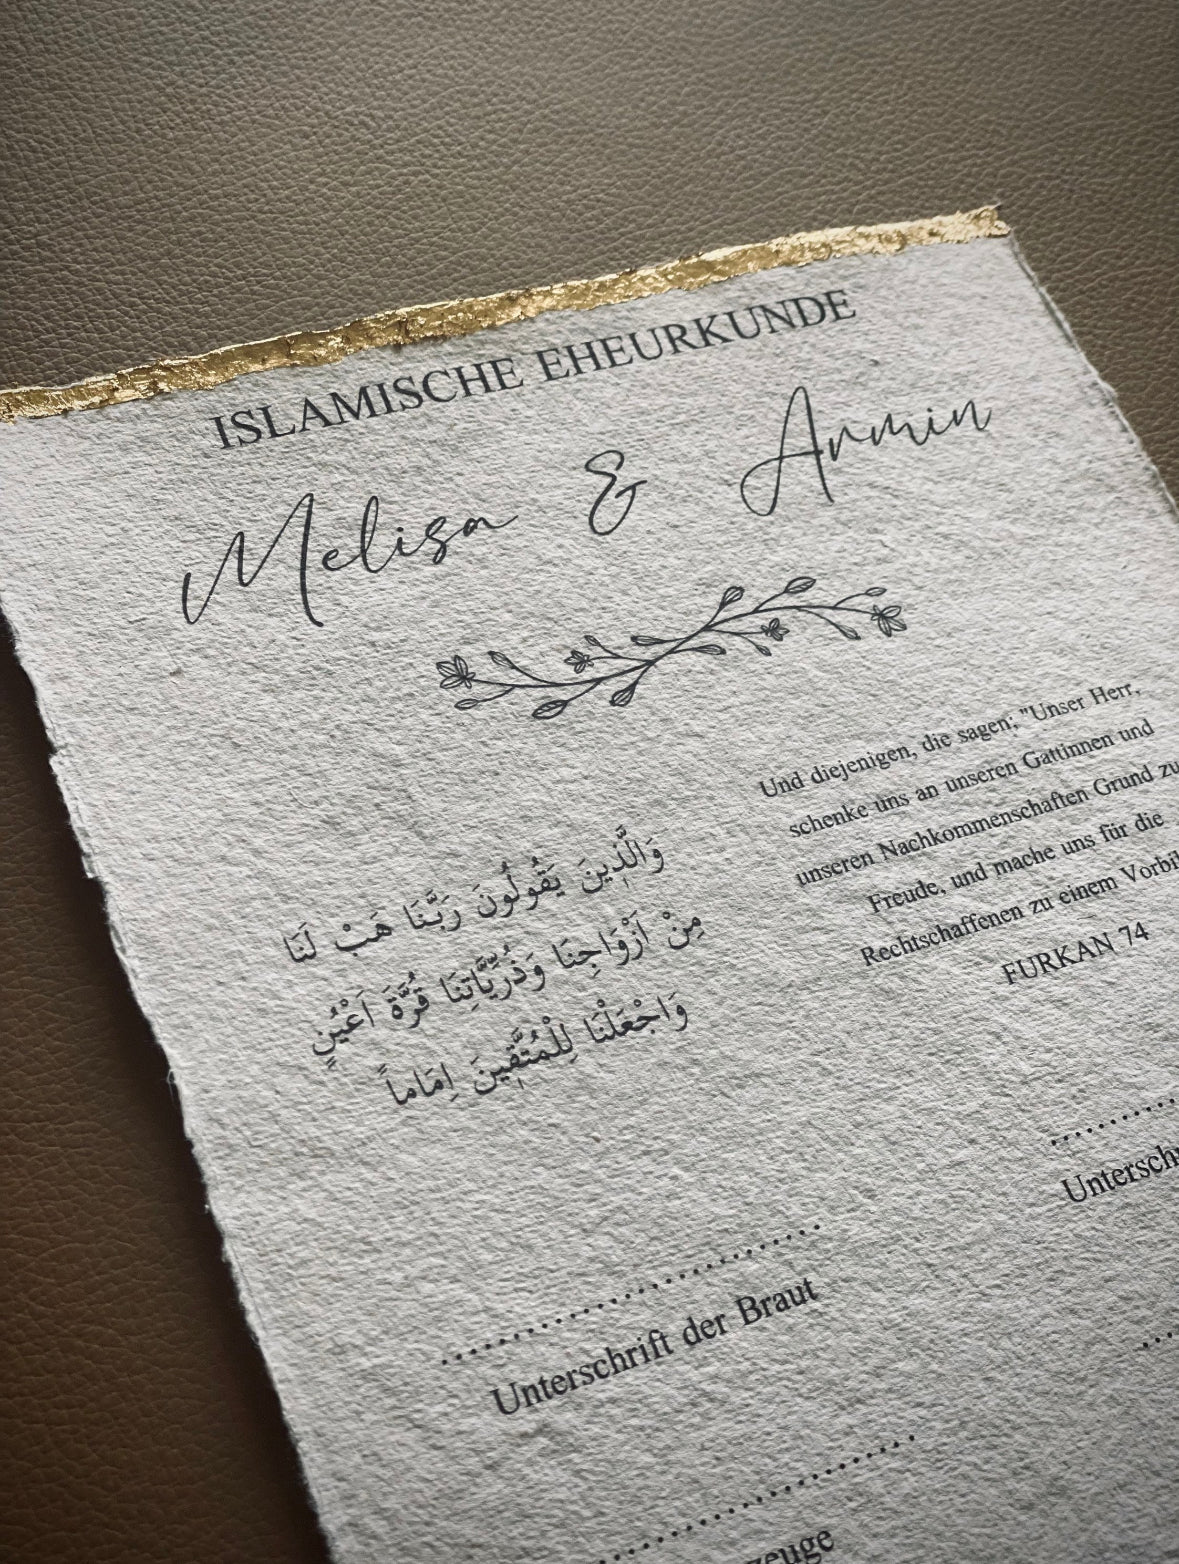 ISLAMISCHE EHEURKUNDE
Melisa & Armin
وَالَّذِينَ يَقُولُونَ رَبَّنَا هَبْ لَنَا
مِنْ اَزْوَاجِنَا وَذُرِّيَّاتِنَا قُرَّةَ اَعْيُنٍ
وَاجْعَلْنَا لِلْمُتَّقِينَ اِمَاماً
Und diejenigen, die sagen; "Unser Herr,
schenke uns an unseren Gattinnen und
unseren Nachkommenschaften Grund zu
Freude, und mache uns für die
Rechtschaffenen zu einem
FURKAN 74
Unterschrift der Braut